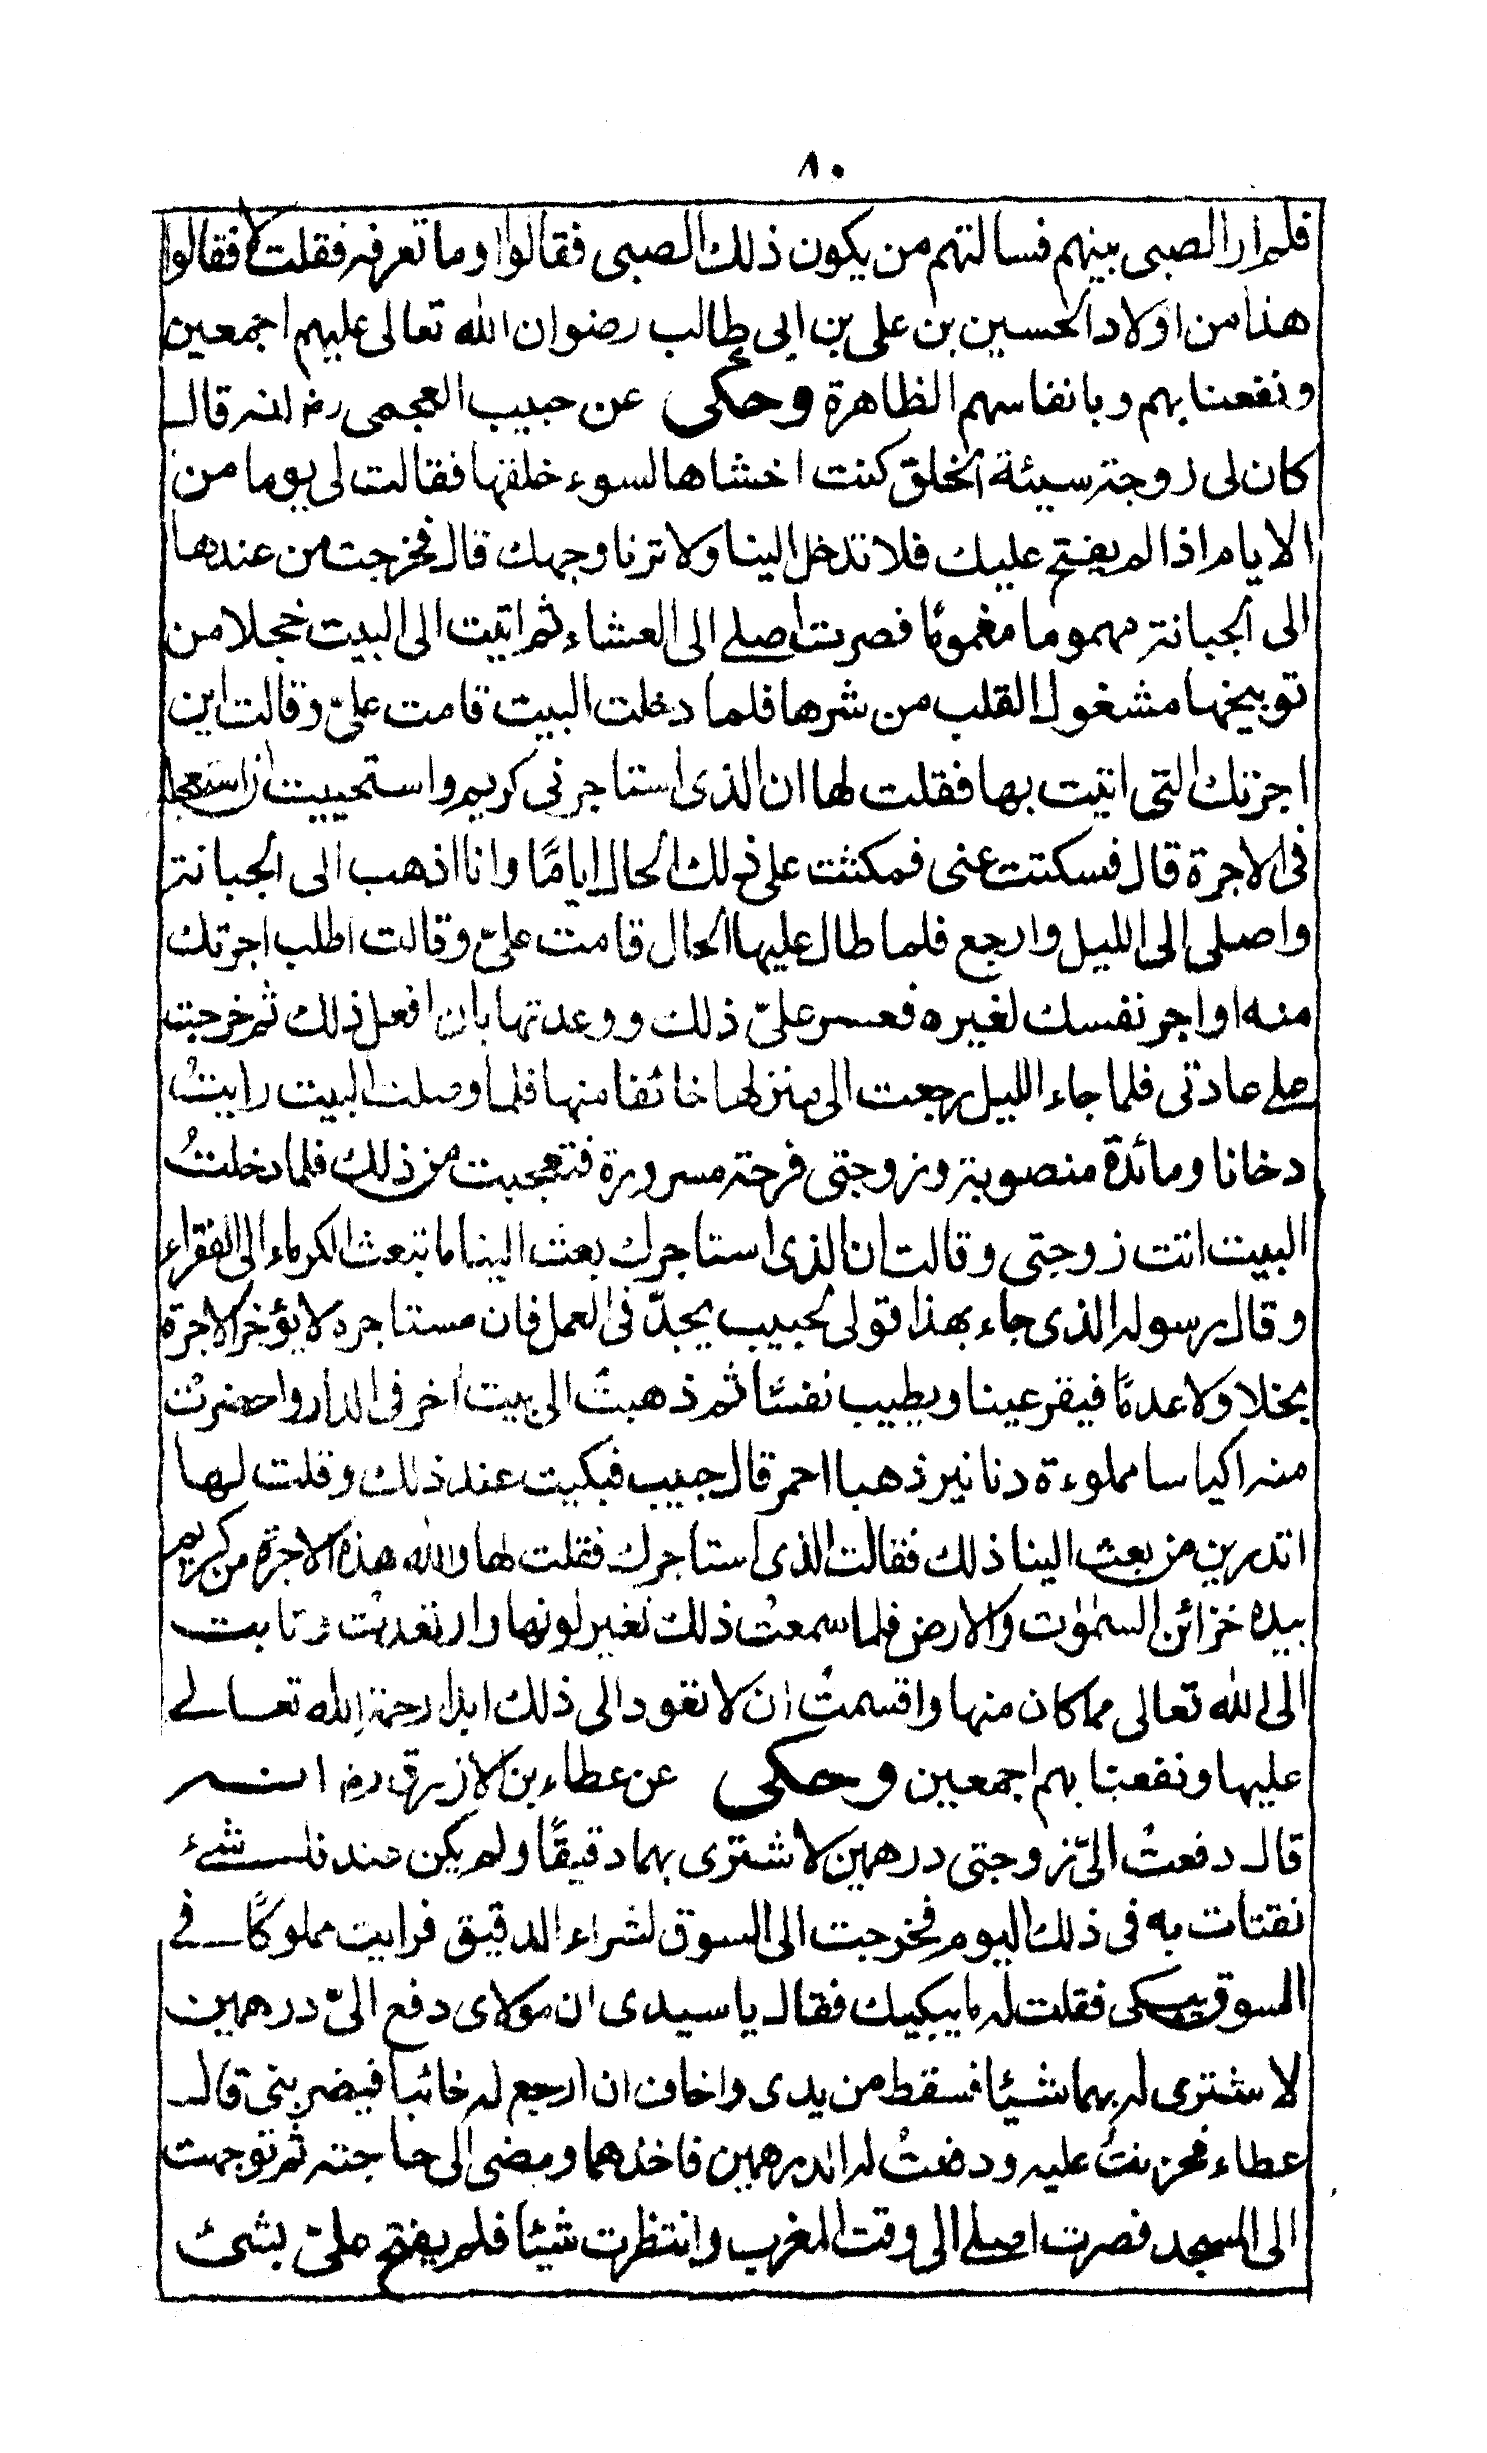 ٨٠
فلم ار الصبى بينهم فسالتهم من يكون ذلك الصبى فقالوا وما تعرفه فقلت لا فقالوا
هذا من اولاد الحسين بن على بن ابى طالب رضوان الله تعالى عليهم اجمعين
ونفعنا بهم وبانفاسهم الظاهرة وحكى عن حبيب العجمى رضـ انه قال
كان لى زوجة سيئة الخلق كنت اخشاها لسوء خلقها فقالت لى يوما من
الايام اذا لم يفتح عليك فلا تدخل الينا ولا ترنا وجهك قال فخرجت من عندها
الى الجبانة مهموما مغموما فصرت اصلے الى العشاء ثم اتيت الى البيت خجلا من
توبيخها مشغول القلب من شرها فلما دخلت البيت قامت علىّ وقالت اين
اجرتك التى اتيت بها فقلت لها ان الذى استاجرنى كريم واستحييت ان استعجل
فى الاجرة قال فسكتت عنى فمكثت على ذلك الحال اياما وانا اذهب الى الجبانة
واصلى الى الليل وارجع فلما طال عليها الحال قامت علىّ وقالت اطلب اجرتك
منه او اجر نفسك لغيره فعسر علىّ ذلك ووعدتها بان افعل ذلك ثم خرجت
علے عادتى فلما جاء الليل رجعت الى منزلها خائفا منها فلما وصلت البيت رايتُ
دخانا ومائدة منصوبة وزوجتى فرحة مسرورة فتعجبت من ذلك فلما دخلتُ
البيت اتت زوجتى وقالت ان الذى استاجرك بعث الينا ما تبعث الكرماء الى الفقراء
وقال رسوله الذى جاء بهذا قولى لحبيب يجدّ فى العمل فان مستاجره لا يؤخر الاجرة
بخلا ولا عدما فيقر عينا ويطيب نفسًا ثم ذهبتْ الى بيت اخر فى الدار واحضرتْ
منه اكياسا مملوءة دنانير ذهبا احمر قال حبيب فبكيت عند ذلك وقلت لها
اتدرين من بعث الينا ذلك فقالت الذى استاجرك فقلت لها والله هذه الاجرة من كريم
بيده خزائن السمٰوٰت والارض فلما سمعتْ ذلك تغير لونها وارتعدتْ وتابت
الى الله تعالى مما كان منها واقسمتْ ان لا تعود الى ذلك ابدا رحمة الله تعالے
عليها ونفعنا بهم اجمعين وحكى عن عطاء بن الازرق رضـ انه
قال دفعتْ الىّ زوجتى درهمين لاشترى بهما دقيقًا ولم يكن عندنا شئ
نقتات به فى ذلك اليوم فخرجت الى السوق لشراء الدقيق فرايت مملوكًا فے
السوق يبكى فقلت له ما يبكيك فقال يا سيدى ان مولاى دفع الىّ درهمين
لاشترى له بهما شيئا فسقط من يدى واخاف ان ارجع له خائبا فيضربنى قال
عطاء فحزنتُ عليه ودفعتُ له الدرهمين فاخذهما ومضى الى حاجته ثم توجهت
الى المسجد فصرت اصلے الى وقت المغرب وانتظرت شيئا فلم يفتح علىّ بشئ